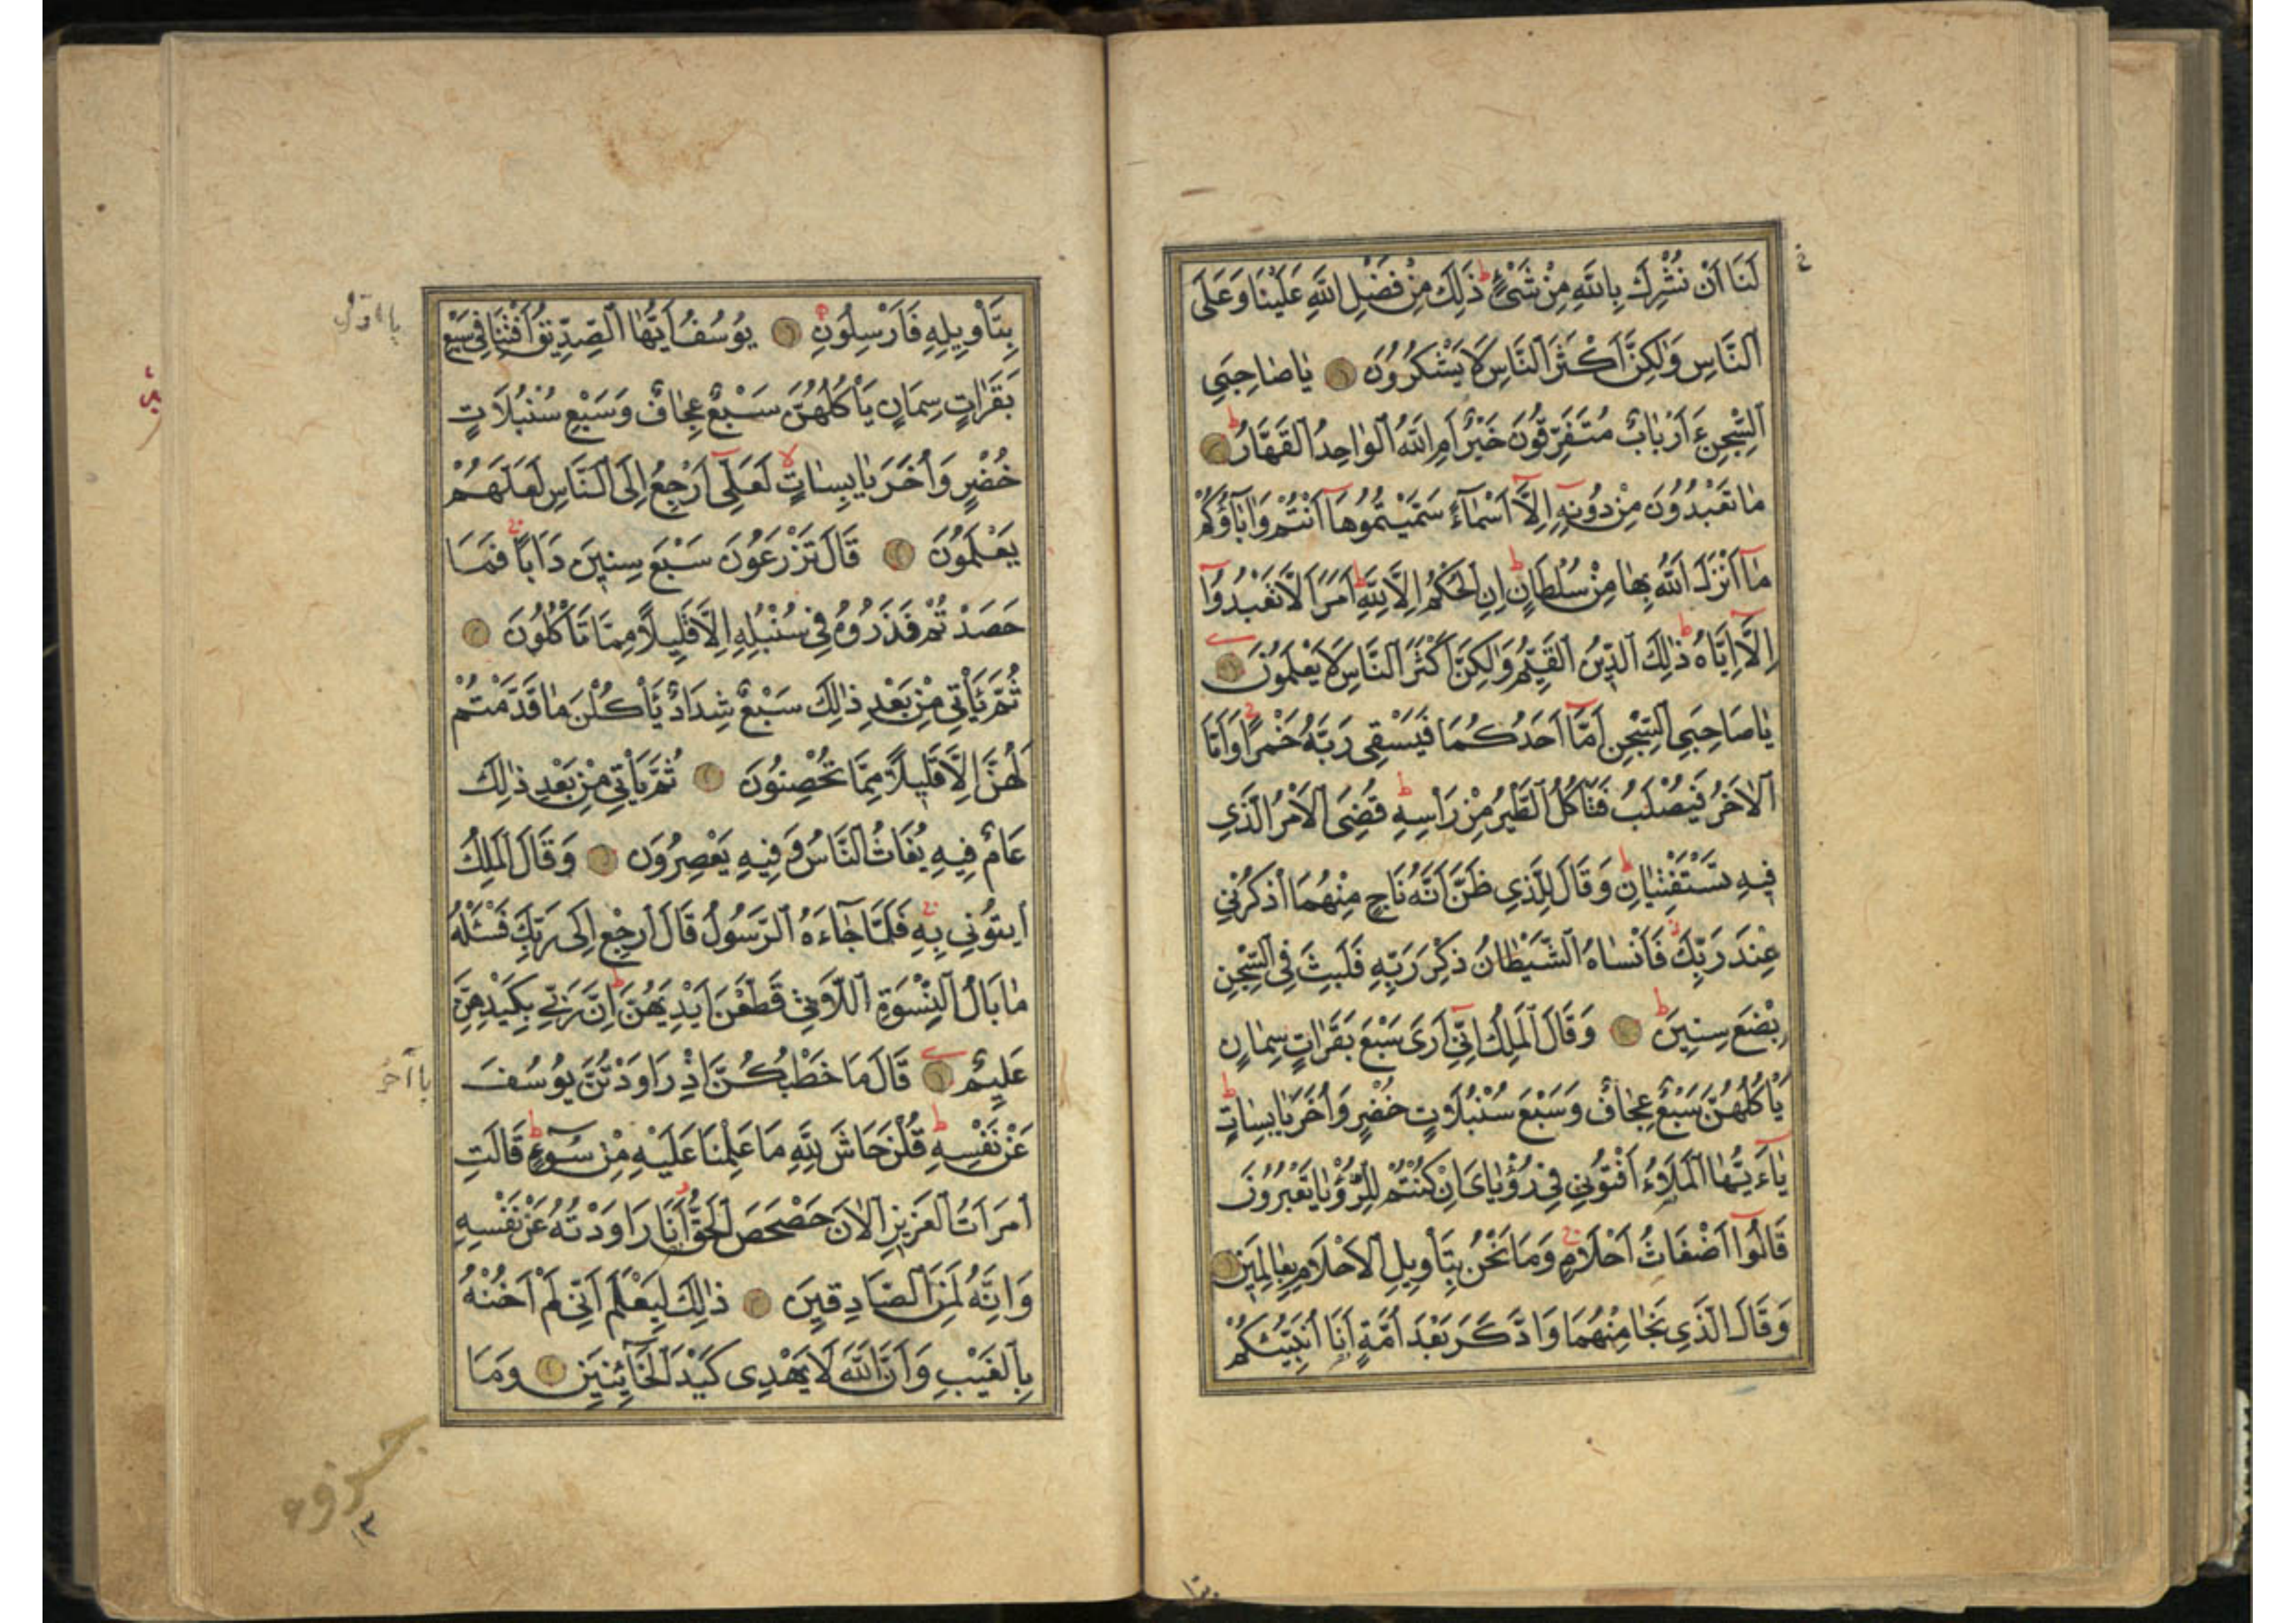 لَنَا اَنْ نُشْرِكَ بِاللّٰهِ مِنْ شَىْءٍ ط ذٰلِكَ مِنْ فَضْلِ اللّٰهِ عَلَيْنَا وَعَلَى
النَّاسِ وَلٰكِنَّ اَكْثَرَ النَّاسِ لَا يَشْكُرُونَ يَاصَاحِبَىِ
السِّجْنِ ءَاَرْبَابٌ مُتَفَرِّقُونَ خَيْرٌ اَمِ اللّٰهُ الْوَاحِدُ الْقَهَّارُ ط
مَا تَعْبُدُونَ مِنْ دُونِهِ اِلَّا اَسْمَاءً سَمَّيْتُمُوهَا اَنْتُمْ وَاٰبَاؤُكُمْ
مَا اَنْزَلَ اللّٰهُ بِهَا مِنْ سُلْطَانٍ ط اِنِ الْحُكْمُ اِلَّا لِلّٰهِ ط اَمَرَ اَلَّا تَعْبُدُوا
اِلَّا اِيَّاهُ ط ذٰلِكَ الدِّينُ الْقَيِّمُ وَلٰكِنَّ اَكْثَرَ النَّاسِ لَا يَعْلَمُونَ
يَاصَاحِبَىِ السِّجْنِ اَمَّا اَحَدُكُمَا فَيَسْقِى رَبَّهُ خَمْرًا ج وَاَمَّا
الْاٰخَرُ فَيُصْلَبُ فَتَاْكُلُ الطَّيْرُ مِنْ رَاْسِهِ ط قُضِىَ الْاَمْرُ الَّذِى
فِيهِ تَسْتَفْتِيَانِ ط وَقَالَ لِلَّذِى ظَنَّ اَنَّهُ نَاجٍ مِنْهُمَا اذْكُرْنِى
عِنْدَ رَبِّكَ فَاَنْسَاهُ الشَّيْطَانُ ذِكْرَ رَبِّهِ فَلَبِثَ فِى السِّجْنِ
بِضْعَ سِنِينَ ط وَقَالَ الْمَلِكُ اِنِّى اَرَى سَبْعَ بَقَرَاتٍ سِمَانٍ
يَاْكُلُهُنَّ سَبْعٌ عِجَافٌ وَسَبْعَ سُنْبُلَاتٍ خُضْرٍ وَاُخَرَ يَابِسَاتٍ ط
يَاءَيُّهَا الْمَلَاُ اَفْتُونِى فِى رُؤْيَاىَ اِنْ كُنْتُمْ لِلرُّؤْيَا تَعْبُرُونَ
قَالُوا اَضْغَاثُ اَحْلَامٍ ج وَمَا نَحْنُ بِتَاْوِيلِ الْاَحْلَامِ بِعَالِمِينَ
وَقَالَ الَّذِى نَجَا مِنْهُمَا وَادَّكَرَ بَعْدَ اُمَّةٍ اَنَا اُنَبِّئُكُمْ
بِتَاْوِيلِهِ فَاَرْسِلُونِ يُوسُفُ اَيُّهَا الصِّدِّيقُ اَفْتِنَا فِى سَبْعِ
بَقَرَاتٍ سِمَانٍ يَاْكُلُهُنَّ سَبْعٌ عِجَافٌ وَسَبْعِ سُنْبُلَاتٍ
خُضْرٍ وَاُخَرَ يَابِسَاتٍ لا لَعَلِّى اَرْجِعُ اِلَى النَّاسِ لَعَلَّهُمْ
يَعْلَمُونَ قَالَ تَزْرَعُونَ سَبْعَ سِنِينَ دَاَبًا ج فَمَا
حَصَدْتُمْ فَذَرُوهُ فِى سُنْبُلِهِ اِلَّا قَلِيلًا مِمَّا تَاْكُلُونَ
ثُمَّ يَاْتِى مِنْ بَعْدِ ذٰلِكَ سَبْعٌ شِدَادٌ يَاْكُلْنَ مَا قَدَّمْتُمْ
لَهُنَّ اِلَّا قَلِيلًا مِمَّا تُحْصِنُونَ ثُمَّ يَاْتِى مِنْ بَعْدِ ذٰلِكَ
عَامٌ فِيهِ يُغَاثُ النَّاسُ وَفِيهِ يَعْصِرُونَ وَقَالَ الْمَلِكُ
ايتُونِى بِهِ ج فَلَمَّا جَاءَهُ الرَّسُولُ قَالَ ارْجِعْ اِلَى رَبِّكَ فَسْئَلْهُ
مَا بَالُ النِّسْوَةِ اللَّاتِى قَطَّعْنَ اَيْدِيَهُنَّ ط اِنَّ رَبِّى بِكَيْدِهِنَّ
عَلِيمٌ قَالَ مَا خَطْبُكُنَّ اِذْ رَاوَدْتُنَّ يُوسُفَ
عَنْ نَفْسِهِ ط قُلْنَ حَاشَ لِلّٰهِ مَا عَلِمْنَا عَلَيْهِ مِنْ سُوءٍ ط قَالَتِ
امْرَاَتُ الْعَزِيزِ الْاٰنَ حَصْحَصَ الْحَقُّ اَنَا رَاوَدْتُهُ عَنْ نَفْسِهِ
وَاِنَّهُ لَمِنَ الصَّادِقِينَ ذٰلِكَ لِيَعْلَمَ اَنِّى لَمْ اَخُنْهُ
بِالْغَيْبِ وَاَنَّ اللّٰهَ لَا يَهْدِى كَيْدَ الْخَائِنِينَ وَمَا
١٣